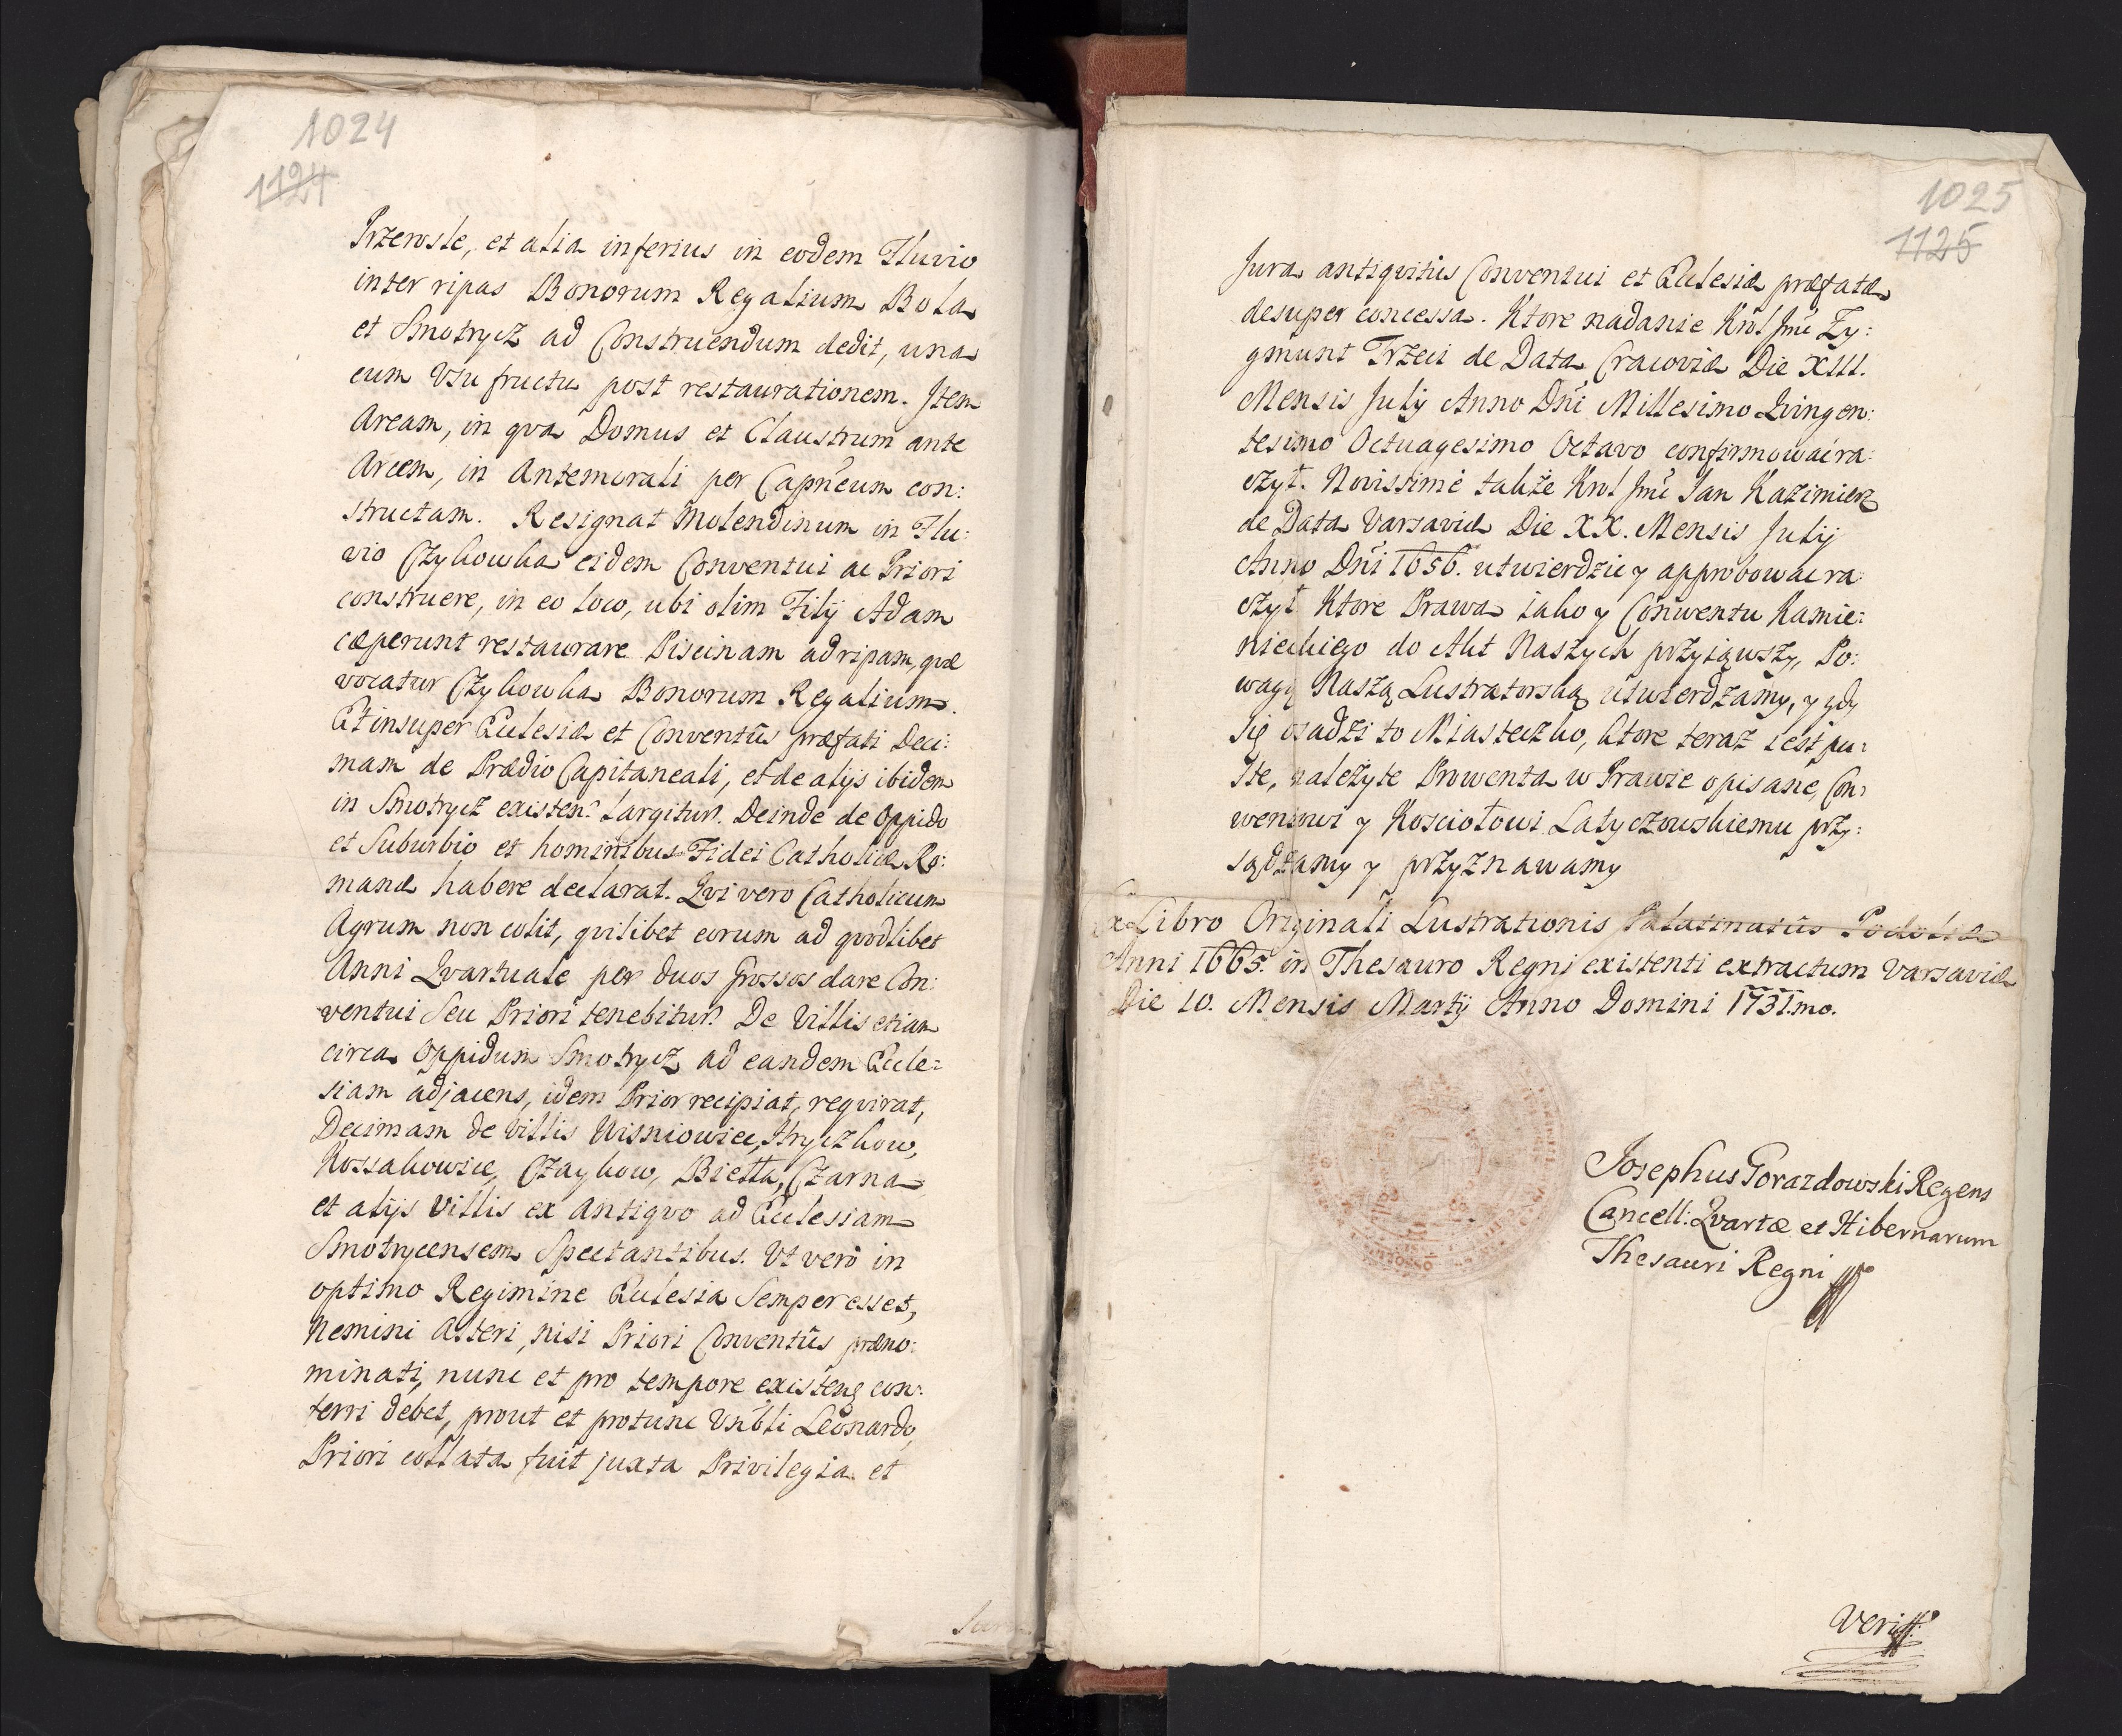 1024
1124
Przerosle, et alia inferius in eodem Fluvio
inter ripas Bonorum Regalium Bola
et Smotrycz ad Construendum dedit, una
cum Usu fructu post restaurationem. Item
Aream, in qva Domus et Claustrum ante
Arcem, in Antemurali per Capńeum con:
structam. Resignat Molendinum in Flu:
vio Czykowka eidem Conventui ac Priori
construere, in eo loco, ubi olim Filij Adam
cæperunt restaurare Piscinam ad ripam, qvæ
vocatur Czykowka Bonorum Regalium.
Et insuper Ecclesiæ et Conventûs præfati Deci:
mam de Prædio Capitaneali, et de alijs ibidem
in Smotrycz existen: Largitur. Deinde de Oppido
et Suburbio et hominibus Fidei Catholicæ Ro:
manæ habere declarat. Qvi vero Catholicum
Agrum non colit, qvilibet eorum ad qvodlibet
Anni Qvartuale per duos Grossos dare Con:
ventui Seu Priori tenebitur. De Villis etiam
circa Oppidum Smotrycz ad eandem Eccle:
siam adjacens, idem Prior recipiat, reqvirat,
Decimam de Villis Wisniowiec, Hryczkow,
Kossakowice, Czaykow, Biełła, Czarna
et alijs Villis ex Antiqvo ad Ecclesiam
Smotrycensem Spectantibus. Vt verò in
optimo Regimine Ecclesia Semper esset,
Nemini Alteri, nisi Priori Conventûs præno:
minati, nunc et pro tempore existens con:
ferri debet, prout et protunc Vńbli Leonardo,
Priori collata fuit juxta Privilegia et
1025
1125
Jura antiqvitùs Conventui et Ecclesiæ præfatæ
desuper concessa. Ktore nadanie Krol Jmć Zy:
gmunt Trzeci de Data Cracoviæ Die XIII.
Mensis July Anno Dńi Millesimo Qvingen:
tesimo Octuagesimo Octavo confirmowac ra:
czył. Novissime także Krol Jmć Jan Kazimierz
de Data Varsaviæ Die XX. Mensis Julij
Anno Dńi 1656. utwierdzic y approbowac ra
czył Ktore Prawa iako y Conwentu Kamie:
nieckiego do Akt Naszych przyiąwszy, Po:
wagą Naszą Lustratorską utwierdzamy, y gdy
się osadzi to Miasteczko, ktore teraz iest pu:
ste, należyte Prowenta w Prawie opisane, Con:
wentowi y Kosciołowi Latyczowskiemu przy:
sądzamy y przyznawamy
Ex Libro Originali Lustrationis Palatinatûs Podoliæ
Anni 1665. in Thesauro Regni existenti extractum Varsaviæ
Die 10. Mensis Martij Anno Domini 1731.mo.
Josephus Gorazdowski Regens
Cancell: Qvartæ et Hibernarum
Thesauri Regni
Veriff: